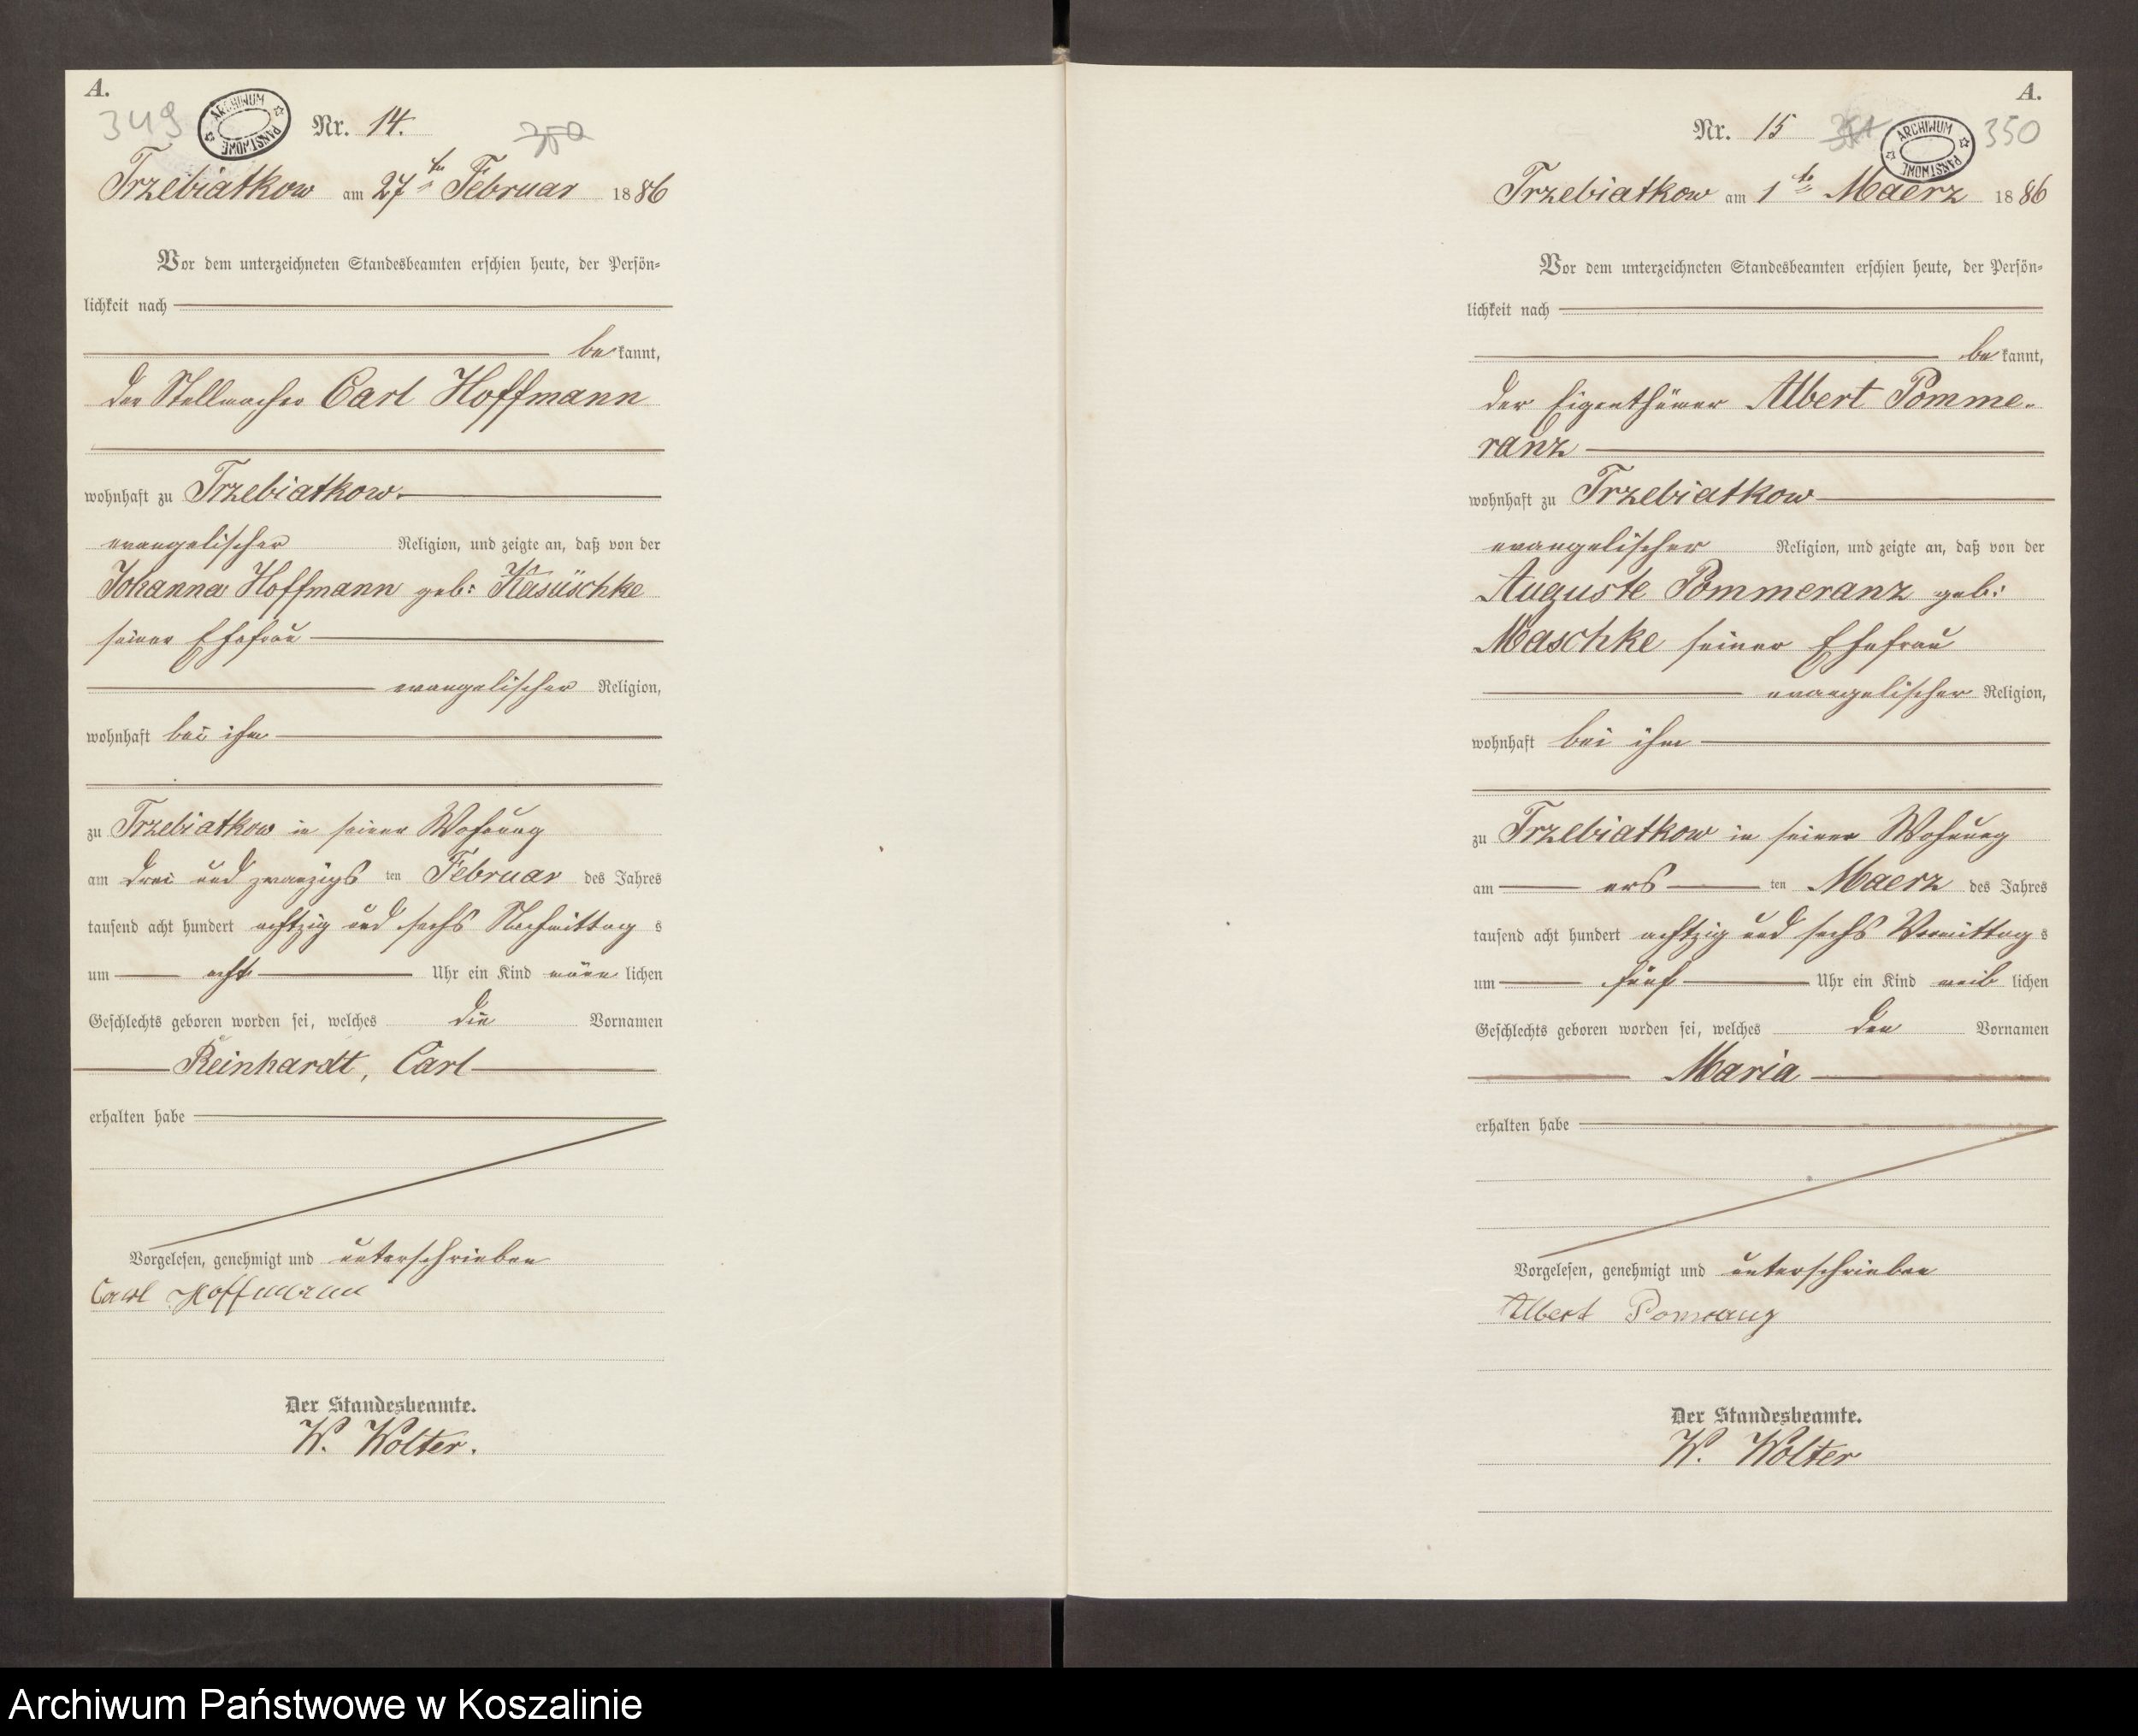 A.
349
ARCHIWUM PAŃSTWOWE
Nr. 14.
350
Trzebiatkow am 27ten Februar 1886
Vor dem unterzeichneten Standesbeamten erschien heute, der Persön-
lichkeit nach
bekannt,
der Stellmacher Carl Hoffmann
wohnhaft zu Trzebiatkow.
evangelischer Religion, und zeigte an, daß von der
Johanna Hoffmann geb:
seiner Ehefrau
evangelischer Religion,
wohnhaft bei ihm
zu Trzebiatkow in seiner Wohnung
am drei und zwanzigsten Februar des Jahres
tausend acht hundert achtzig und sechs Nachmittags
um acht Uhr ein Kind männlichen
Geschlechts geboren worden sei, welches die Vornamen
Reinhardt, Carl
erhalten habe
Vorgelesen, genehmigt und unterschrieben
Carl Hoffmann
Der Standesbeamte.
W. Wolter.
A.
Nr. 15
351
ARCHIWUM PAŃSTWOWE
350
Trzebiatkow am 1ten Maerz 1886
Vor dem unterzeichneten Standesbeamten erschien heute, der Persön-
lichkeit nach
bekannt,
der Eigenthümer Albert Pomme-
ranz
wohnhaft zu Trzebiatkow
evangelischer Religion, und zeigte an, daß von der
Auguste Pommeranz geb:
Maschke seiner Ehefrau
evangelischer Religion,
wohnhaft bei ihm
zu Trzebiatkow in seiner Wohnung
am ersten Maerz des Jahres
tausend acht hundert achtzig und sechs Vormittags
um fünf Uhr ein Kind weiblichen
Geschlechts geboren worden sei, welches den Vornamen
Maria
erhalten habe
Vorgelesen, genehmigt und unterschrieben
Albert Pomranz
Der Standesbeamte.
W. Wolter
Archiwum Państwowe w Koszalinie